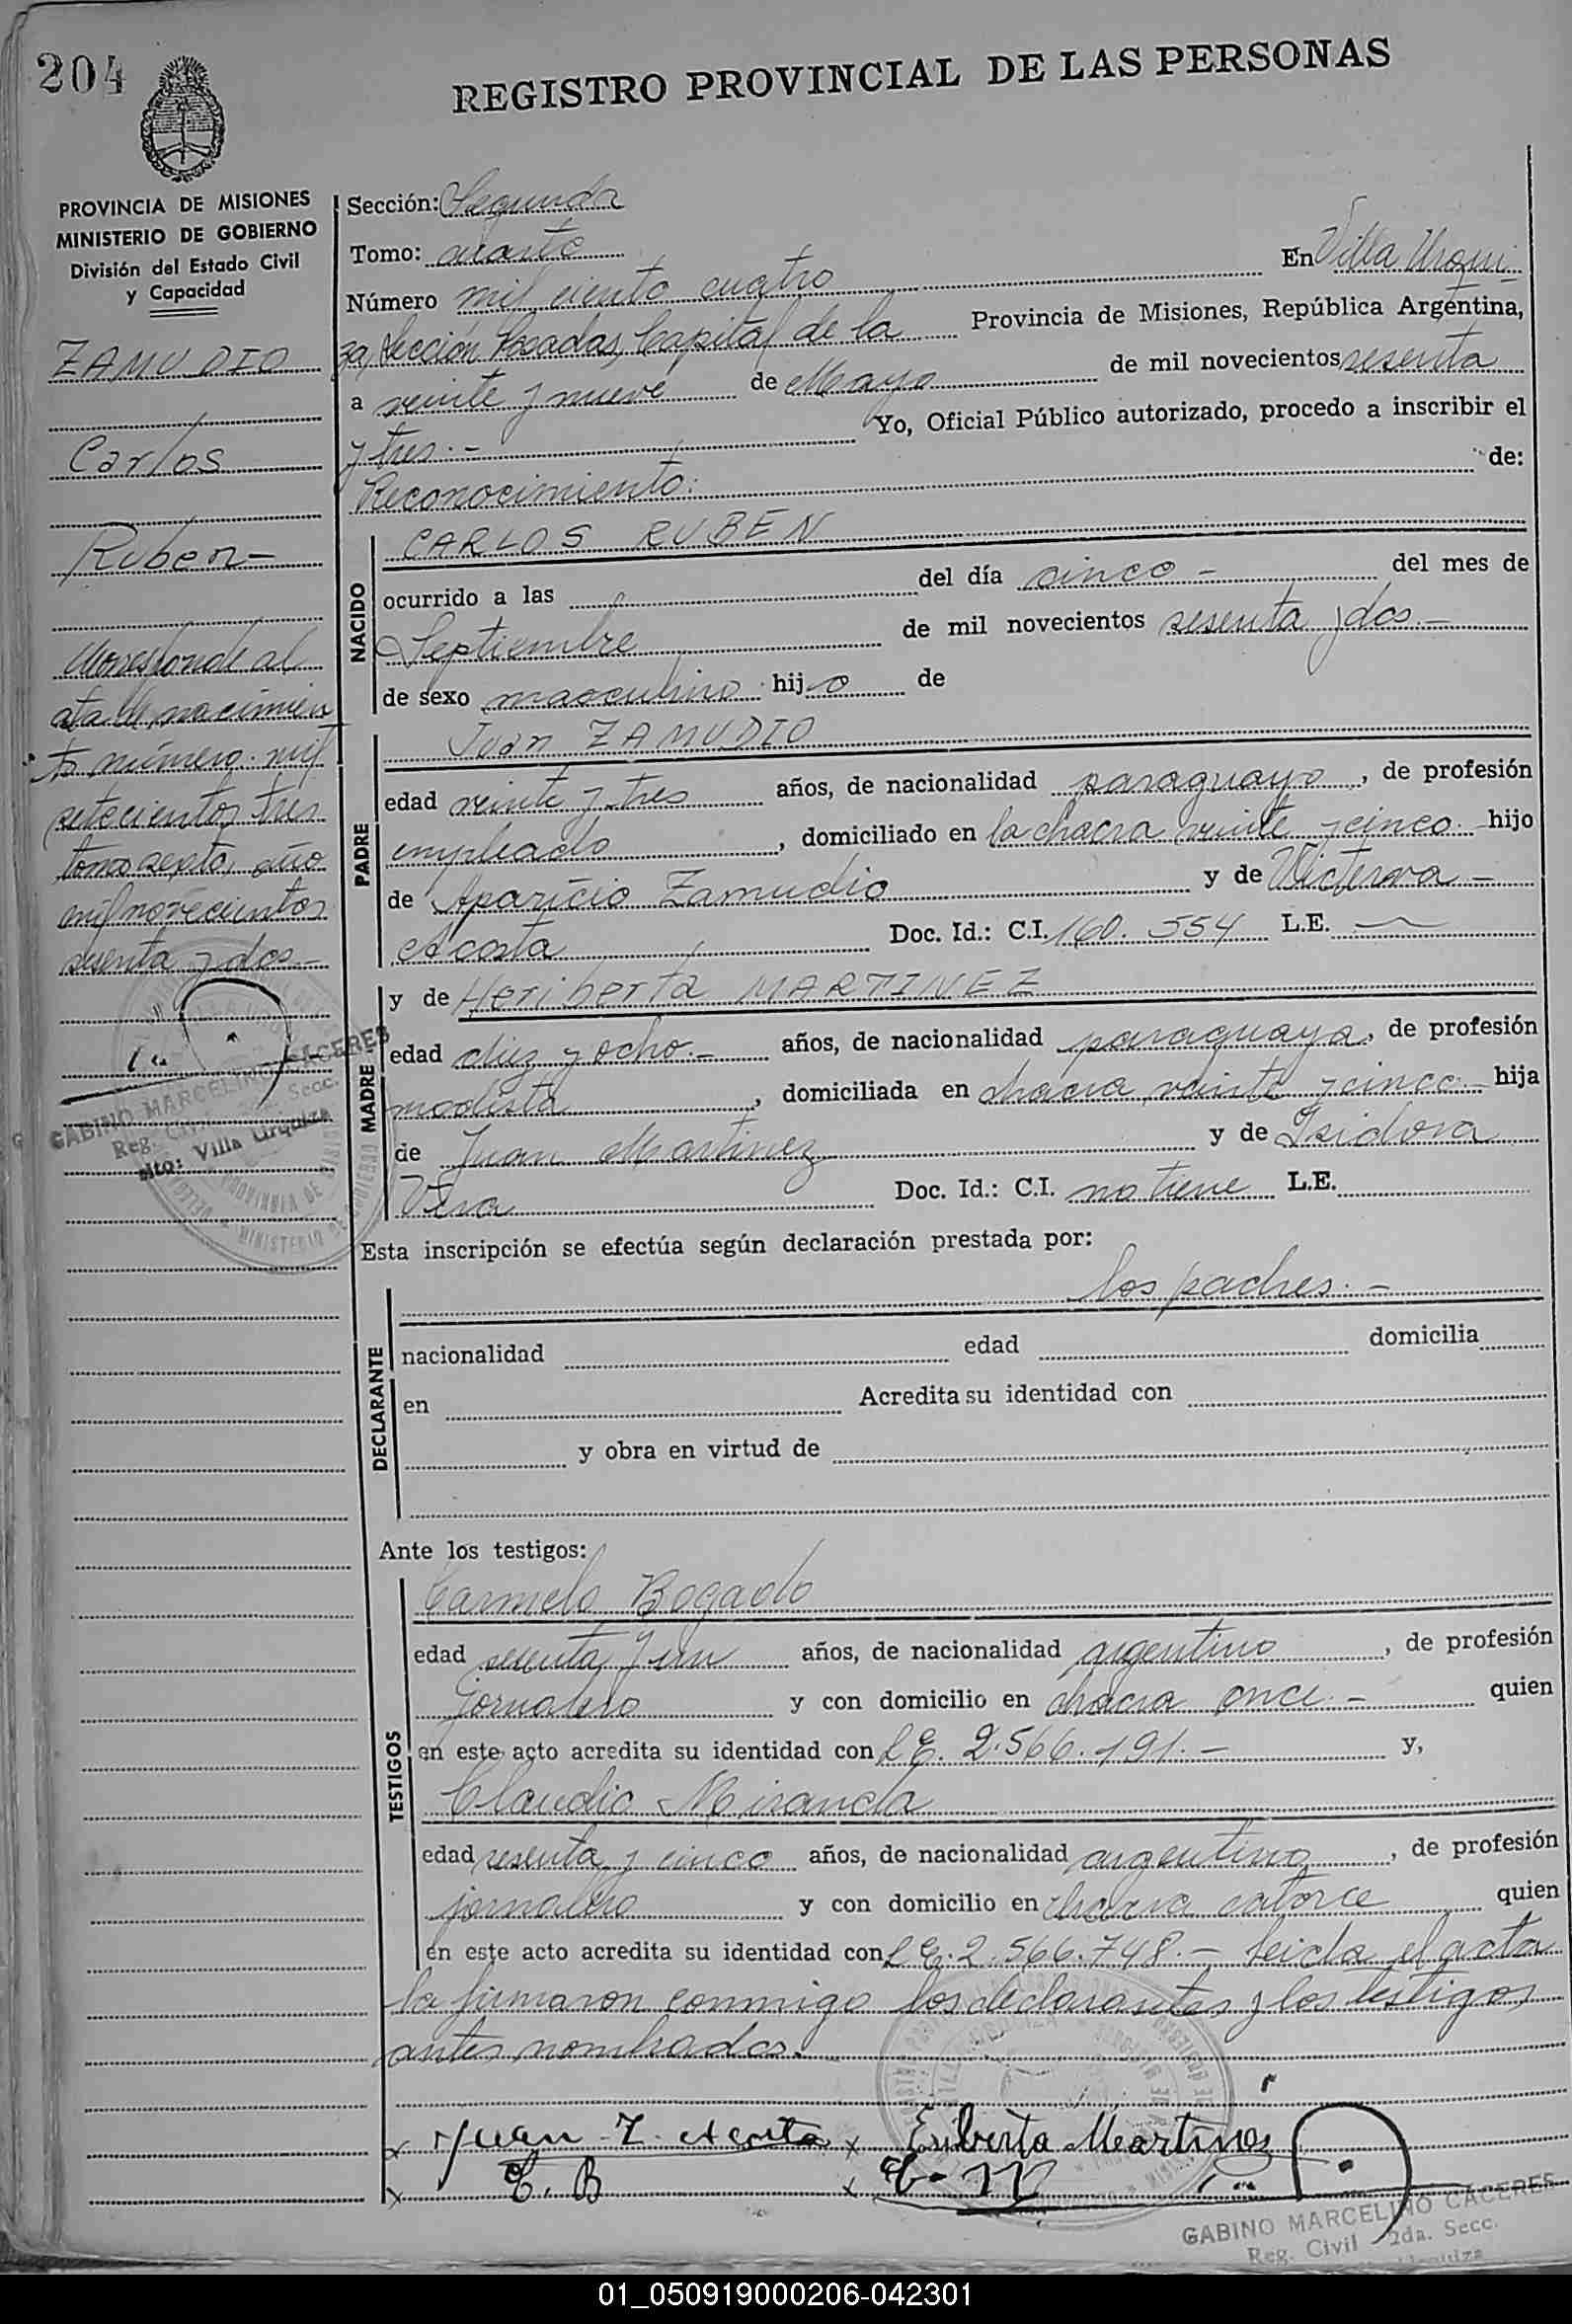 204
REGISTRO PROVINCIAL DE LAS PERSONAS
PROVINCIA DE MISIONES
MINISTERIO DE GOBIERNO
División del Estado Civil
y Capacidad
ZAMUDIO
Carlos
Ruben -
Corresponde al
acta de nacimien
to número mil
setecientos tres
tomo sexto, año
mil novecientos
sesenta y dos.-
GABINO MARCELINO CACERES
Reg. Civil Secc.
Villa Urquiza
Sección: Segunda
Tomo: cuarto
Número mil ciento cuatro En Villa Urqui-
za, Sección Posadas, Capital de la Provincia de Misiones, República Argentina,
a veinte y nueve de Mayo de mil novecientos sesenta
y tres.- Yo, Oficial Público autorizado, procedo a inscribir el
Reconocimiento: de:
NACIDO
CARLOS RUBEN
ocurrido a las del día cinco - del mes de
Septiembre de mil novecientos sesenta y dos.-
de sexo masculino hijo de
PADRE
Juan ZAMUDIO
edad veinte y tres años, de nacionalidad paraguayo, de profesión
empleado, domiciliado en la chacra veinte y cinco.- hijo
de Aparicio Zamudio y de
Acosta Doc. Id.: C.I. 160.554 L.E.
MADRE
y de Heriberta MARTINEZ
edad diez y ocho.- años, de nacionalidad paraguaya, de profesión
modista, domiciliada en chacra veinte y cinco.- hija
de Juan Martinez y de Isidora
Vera Doc. Id.: C.I. no tiene L.E.
Esta inscripción se efectúa según declaración prestada por:
DECLARANTE
los padres.-
nacionalidad edad domicilia
en Acredita su identidad con
y obra en virtud de
Ante los testigos:
TESTIGOS
Carmelo Bogado
edad sesenta y un años, de nacionalidad argentino, de profesión
jornalero y con domicilio en chacra once.- quien
en este acto acredita su identidad con L.E. 2.566.191.- y,
Claudio Miranda
edad sesenta y cinco años, de nacionalidad argentino, de profesión
jornalero y con domicilio en chacra catorce quien
en este acto acredita su identidad con L.E. 2.566.748.- Leida el acta
la firmaron conmigo los declarantes y los testigos
antes nombrados.
x Juan Z. Acosta x Eriberta Martines
x C. B x
GABINO MARCELINO CACERES
Reg. Civil 2da. Secc.
01_050919000206-042301